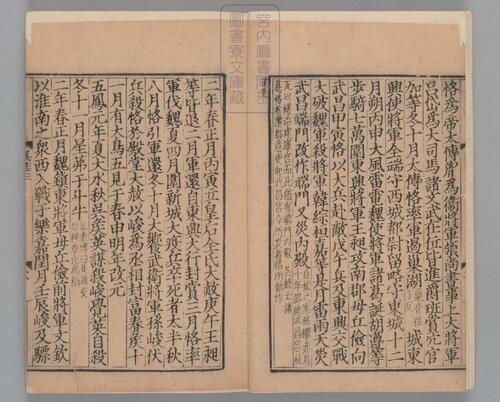 恪為帝太傅胤為衞將軍領尚書事上大將軍
呂岱為大司馬諸文武在位皆進爵班賞宂官
加等冬十月太傅恪率軍遏巢湖 城東
興使將軍全端守西城都尉留略守東城十二
月朔丙申大風雷電魏使將軍諸葛誕胡遵等
步騎七萬圍東興將軍王昶攻南郡毌丘儉向
武昌甲寅恪以大兵赴敵戊午兵及東興交戰
大破魏軍殺將軍韓綜桓嘉等是月雷雨天災
武昌端門改作端門又災內殿臣松之案孫權赤烏十年詔徙武昌宮材
瓦以繕治建康宮而此猶有端門內殿 吳錄云諸
葛恪有遷都意更起武昌宮今所災者恪所新作
二年春正月丙寅立皇后全氏大赦庚午王昶
等皆退二月軍還自東興大行封賞三月恪率
軍伐魏夏四月圍新城大疫兵卒死者太半秋
八月恪引軍還冬十月大饗武衞將軍孫峻伏
兵殺恪於殿堂大赦以峻為丞相封富春侯十
一月有大鳥五見于春申明年改元
五鳳元年夏大水秋吳侯英謀殺峻覺英自殺
冬十一月星茀于斗牛江表傳曰是歲交阯稗草化為稻
二年春正月魏鎮東將軍毌丘儉前將軍文欽
以淮南之衆西入戰于樂嘉閏月壬辰峻及驃
宮內廳書陵部
圖書寮文庫藏